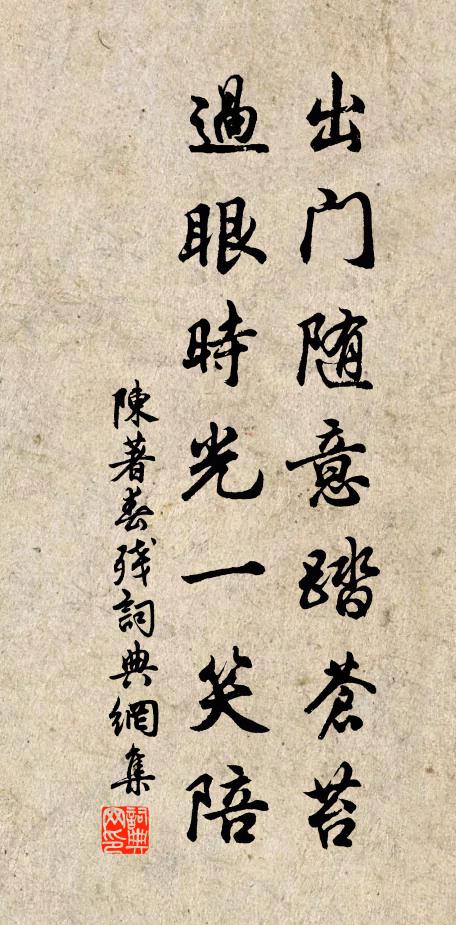 出门随意踏苍苔
過眼時光一笑陪
陳著春残詞典網集
詞典网印